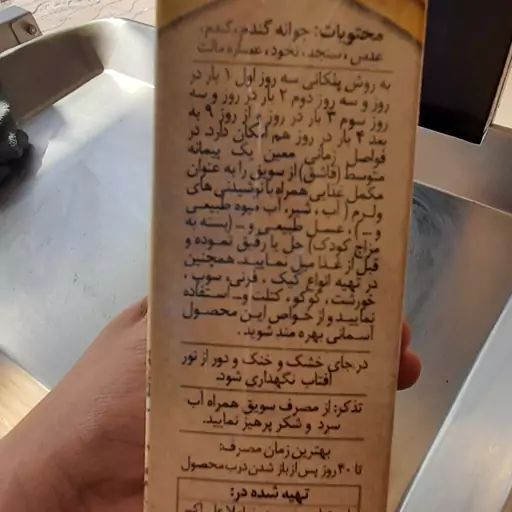 محتویات: جوانه گندم، گندم،
عدس، سنجد، نخود، عصاره مالت
به روش پلکانی سه روز اول ۱ بار در
روز و سه روز دوم ۲ بار در روز و سه
روز سوم ۳ بار در روز، از روز ۹ به
بعد ۴ بار در روز هم امکان دارد. در
فواصل زمانی معین یک پیمانه
متوسط (قاشق) از سویق را به عنوان
مکمل غذایی همراه با نوشیدنی های
ولرم ( آب ، شیر، آب میوه طبیعی
و ...) ، عسل طبیعی و... (بسته به
مزاج کودک) حل یا رقیق نموده و
قبل از غذا میل نمایید. همچنین
در تهیه انواع کیک ، فرنی، سوپ ،
خورشت، کوکو، کتلت و... استفاده
نمایید و از خواص این محصول
آسمانی بهره مند شوید .
در جای خشک و خنک و دور از نور
آفتاب نگهداری شود.
تذکر: از مصرف سویق همراه آب
سرد و شکر پرهیز نمایید.
بهترین زمان مصرف:
تا ۴۰ روز پس از باز شدن درب محصول
تهیه شده در: